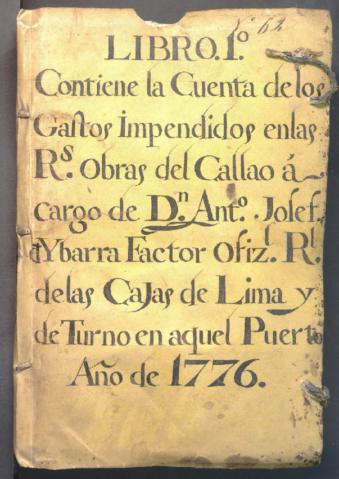 Nº 62
LIBRO. 1.º
Contiene la Cuenta de los
Gastos Impendidos enlas
R.s Obras del Callao á
cargo de D.n Ant.º Josef.
d'Ybarra Factor Ofiz.l R.l
de las Cajas de Lima y
de Turno en aquel Puerto
Año de 1776.